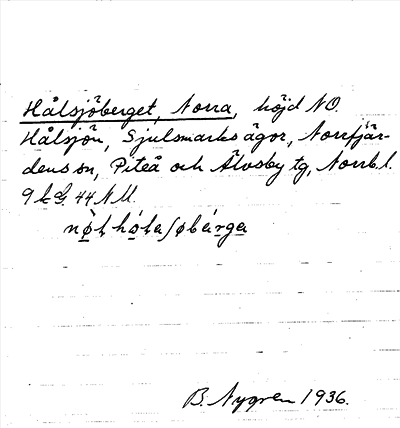 Hålsjöberget, Norra, höjd NO.
Hålsjön, Sjulsmarks ägor, Norrfjär-
dens sn, Piteå och Älvsby tg, Norrb. l.
44 NU.
B. Nygren 1936.